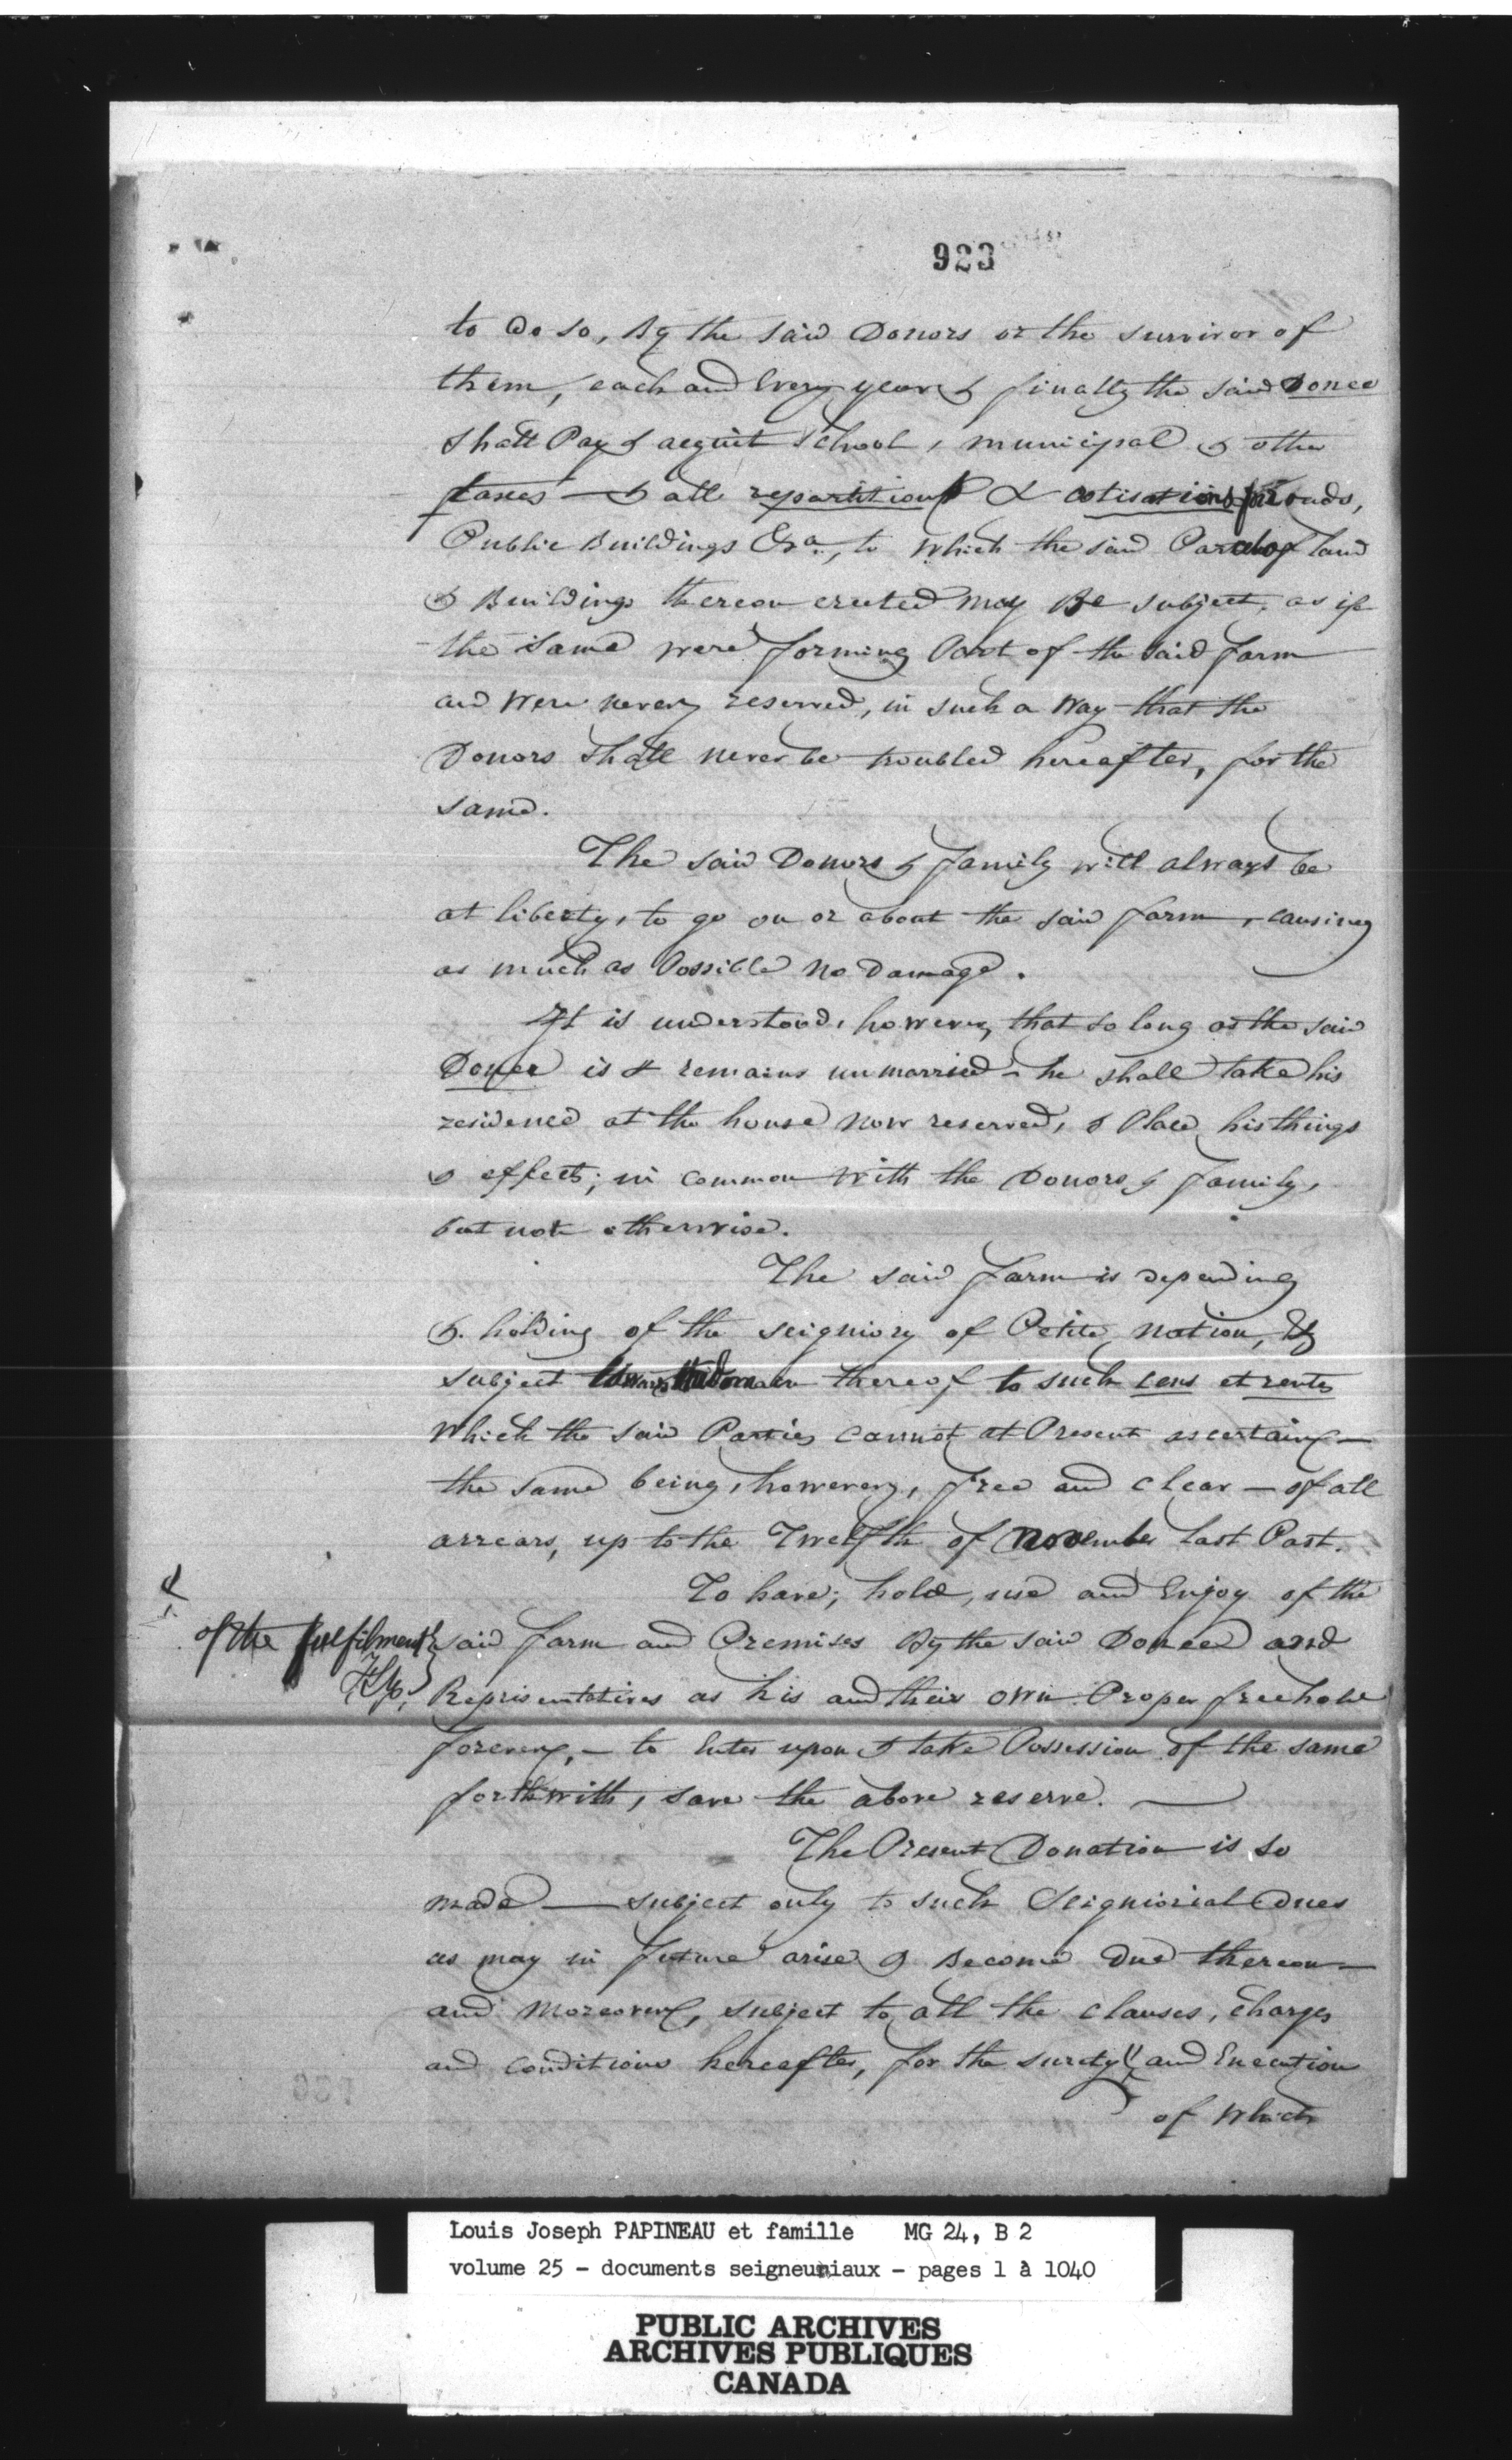 923
to do so, By the said Donors or the survivor of
them, each and Every year & finally the said Donee
shall Pay & acquit School, municipal & other
taxes — & all repartitions & cotisations for roads,
Public Buildings &ra., to which the said Parcel of land
& Buildings thereon erected may Be subject, as if
the same were forming Part of the said farm
and were never reserved, in such a way that the
Donors shall never be troubled hereafter, for the
same.
The said Donors & family will always be
at liberty, to go on or about the said farm, causing
as much as Possible no Damage.
It is understood, however, that so long as the said
Donee is & remains unmarried — he shall take his
residence at the house now reserved, & Place his things
& effects; in common with the Donors & family,
but not otherwise.
The said farm is depending
&. holding of the seigniory of Petite nation, &
subject towards the Domain thereof to such cens et rentes
which the said Parties cannot at Present ascertain —
the same being, however, free and clear — of all
arrears, up to the Twelfth of November last Past.
To have; hold, use and Enjoy of the
said farm and Premises By the said Donee and
Representatives as his and their own Proper freehold
forever, — to Enter upon & take Possession of the same
forthwith, save the above reserve. —
The Present Donation is so
made — subject only to such Seigniorial Dues
as may in future arise & Become Due thereon —
and moreover, subject to all the clauses, charges
and conditions hereafter, for the surety and Execution
of which
of the fulfilment
Louis Joseph PAPINEAU et famille MG 24, B 2
volume 25 - documents seigneuriaux - pages 1 à 1040
PUBLIC ARCHIVES
ARCHIVES PUBLIQUES
CANADA